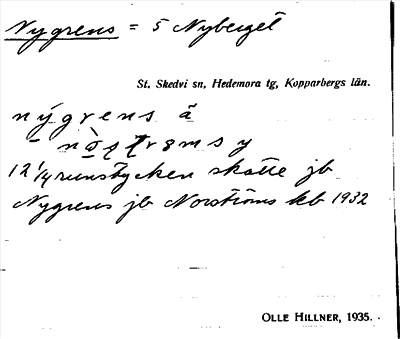 Nygrens = 5 Nyberget
St. Skedvi sn, Hedemora tg, Kopparbergs län.
nýgrens å
12 1/4 runstycken skatte jb
Nygrens jb Norströms kb 1932
OLLE HILLNER, 1935.